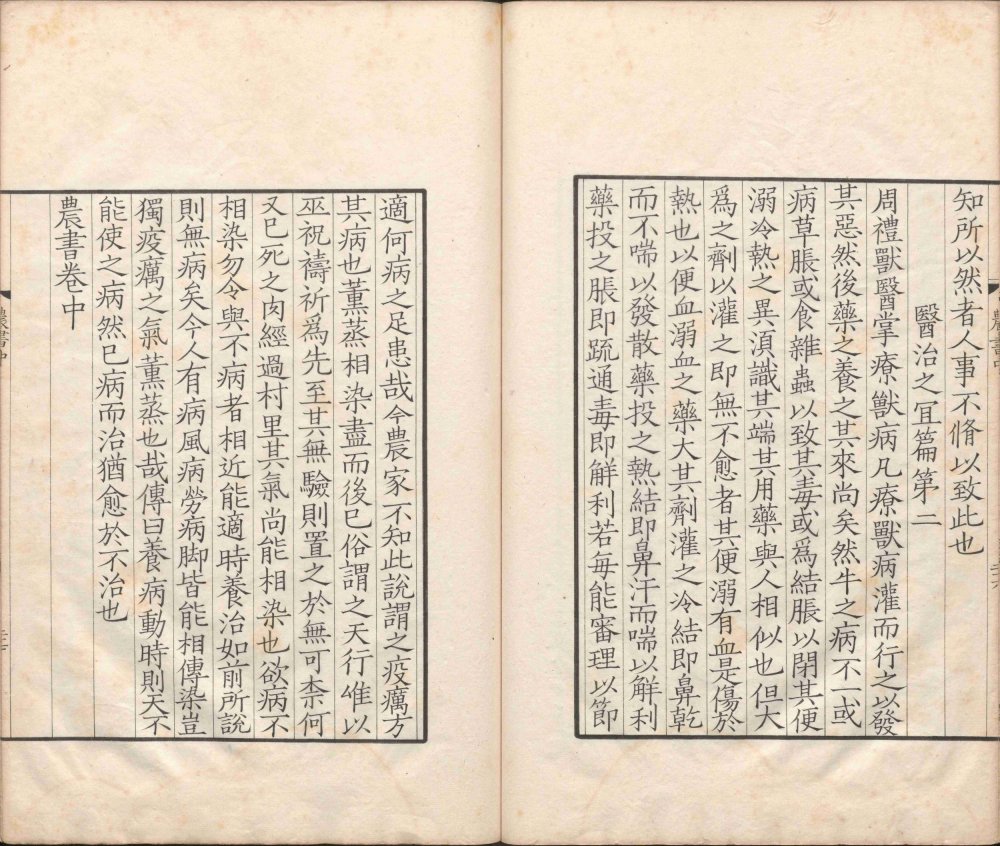 知所以然者人事不脩以致此也
醫治之冝篇第二
周禮獸醫掌療獸病凡療獸病灌而行之以發
其惡然後藥之養之其來尚矣然牛之病不一或
病草脹或食雜蟲以致其毒或爲結脹以閉其便
溺冷熱之異湏識其端其用藥與人相似也但大
爲之劑以灌之即無不愈者其便溺有血是傷於
熱也以便血溺血之藥大其劑灌之冷結即鼻乾
而不喘以發散藥投之熱結即鼻汗而喘以解利
藥投之脹即疏通毒即解利若每能審理以節
適何病之足患哉今農家不知此說謂之疫癘方
其病也薰蒸相染盡而後已俗謂之天行唯以
巫祝禱祈爲先至其無驗則置之於無可柰何
又已死之肉經過村里其氣尚能相染也欲病不
相染勿令與不病者相近能適時養治如前所說
則無病矣今人有病風病勞病脚皆能相傳染豈
獨疫癘之氣薰蒸也哉傳曰養病動時則天不
能使之病然已病而治猶愈於不治也
農書卷中